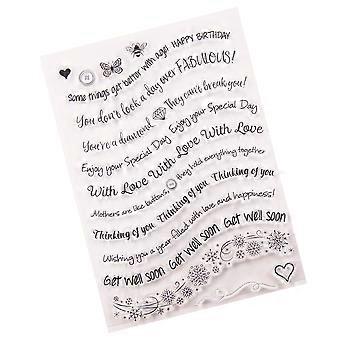 HAPPY BIRTHDAY
some things get better with age!
You don't look a day over FABULOUS!
You're a diamond They can't break you!
Enjoy your Special Day Enjoy your Special Day
With Love With Love With Love
Mothers are like buttons they hold everything together
Thinking of you Thinking of you Thinking of you
Wishing you a year filled with love and happiness!
Get well soon Get well soon Get well soon